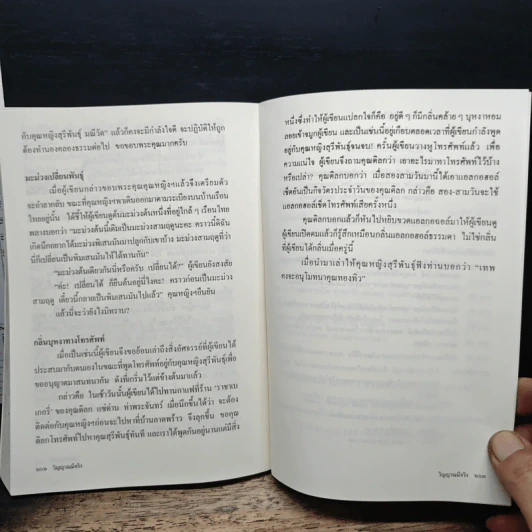 กับคุณหญิงสุรีพันธุ์ มณีวัต” แล้วก็คงจะมีกำลังใจดี จะปฏิบัติให้ถูก
ต้องทำนองคลองธรรมต่อไป ขอขอบพระคุณมากครับ
มะม่วงเปลี่ยนพันธุ์
เมื่อผู้เขียนกล่าวขอบพระคุณคุณหญิงฯแล้วจึงเตรียมตัว
จะอำลากลับ ขณะที่คุณหญิงฯพาเดินออกมาตามระเบียงบนบ้านเรือน
ไทยอยู่นั้น ได้ชี้ให้ผู้เขียนดูต้นมะม่วงต้นหนึ่งที่อยู่ใกล้ ๆ เรือนไทย
พลางบอกว่า “มะม่วงต้นนี้เดิมเป็นมะม่วงสามฤดูนะคะ คราวนี้ดิฉัน
เกิดนึกอยากได้มะม่วงพิมเสนมันมาปลูกกับเขาบ้าง มะม่วงสามฤดูที่ว่า
นี้ก็เปลี่ยนเป็นพิมเสนมันให้ได้ทานกัน”
“มะม่วงต้นเดียวกันนี้หรือครับ เปลี่ยนได้?” ผู้เขียนยังสงสัย
“ค่ะ! เปลี่ยนได้ ก็ยืนต้นอยู่นี่ไงคะ! คราวก่อนเป็นมะม่วง
สามฤดู เดี๋ยวนี้กลายเป็นพิมเสนมันไปแล้ว” คุณหญิงฯยืนยัน
แล้วนี่จะว่ายังไงมิทราบ?
กลิ่นบุหงาทางโทรศัพท์
เมื่อเป็นเช่นนี้ผู้เขียนจึงขอย้อนเล่าถึงสิ่งอัศจรรย์ที่ผู้เขียนได้
ประสบมากับตนเองในขณะที่พูดโทรศัพท์อยู่กับคุณหญิงสุรีพันธุ์เพื่อ
ขออนุญาตมาสนทนากัน ดังที่เกริ่นไว้แต่ข้างต้นมาแล้ว
กล่าวคือ ในเช้าวันนั้นผู้เขียนได้ไปทานกาแฟที่ร้าน ‘ราชาเบ
เกอรี่’ ของคุณดิลก แซ่ด่าน ท่าพระจันทร์ เมื่อนึกขึ้นได้ว่า จะต้อง
ติดต่อกับคุณหญิงฯก่อนจะไปหาที่บ้านลาดพร้าว จึงลุกขึ้น ขอคุณ
ดิลกโทรศัพท์ไปหาคุณสุรีพันธุ์ทันที และเราได้พูดกันอยู่นานแต่มีสิ่ง
๒๐๒ วิญญาณมีจริง
หนึ่งซึ่งทำให้ผู้เขียนแปลกใจก็คือ อยู่ดี ๆ ก็มีกลิ่นคล้าย ๆ บุหงาหอม
ลอยเข้าจมูกผู้เขียน และเป็นเช่นนี้อยู่เกือบตลอดเวลาที่ผู้เขียนกำลังพูด
อยู่กับคุณหญิงสุรีพันธุ์จนจบ! ครั้นผู้เขียนวางหูโทรศัพท์แล้ว เพื่อ
ความแน่ใจ ผู้เขียนจึงถามคุณดิลกว่า เอาอะไรมาทาโทรศัพท์ไว้บ้าง
หรือเปล่า? คุณดิลกบอกว่า เมื่อสองสามวันมานี้ได้เอาแอลกอฮอล์
เช็ดอันเป็นกิจวัตรประจำวันของคุณดิลก กล่าวคือ สอง-สามวันจะใช้
แอลกอฮอล์เช็ดโทรศัพท์เสียครั้งหนึ่ง
คุณดิลกบอกแล้วก็หันไปหยิบขวดแอลกอฮอล์มาให้ผู้เขียนดู
ผู้เขียนเปิดดมแล้วก็รู้สึกเหมือนกลิ่นแอลกอฮอล์ธรรมดา ไม่ใช่กลิ่น
ที่ผู้เขียนได้กลิ่นเมื่อครู่นี้
เมื่อนำมาเล่าให้คุณหญิงสุรีพันธุ์ฟังท่านบอกว่า “เทพ
คงจะอนุโมทนาคุณทองทิว”
วิญญาณมีจริง ๒๐๓